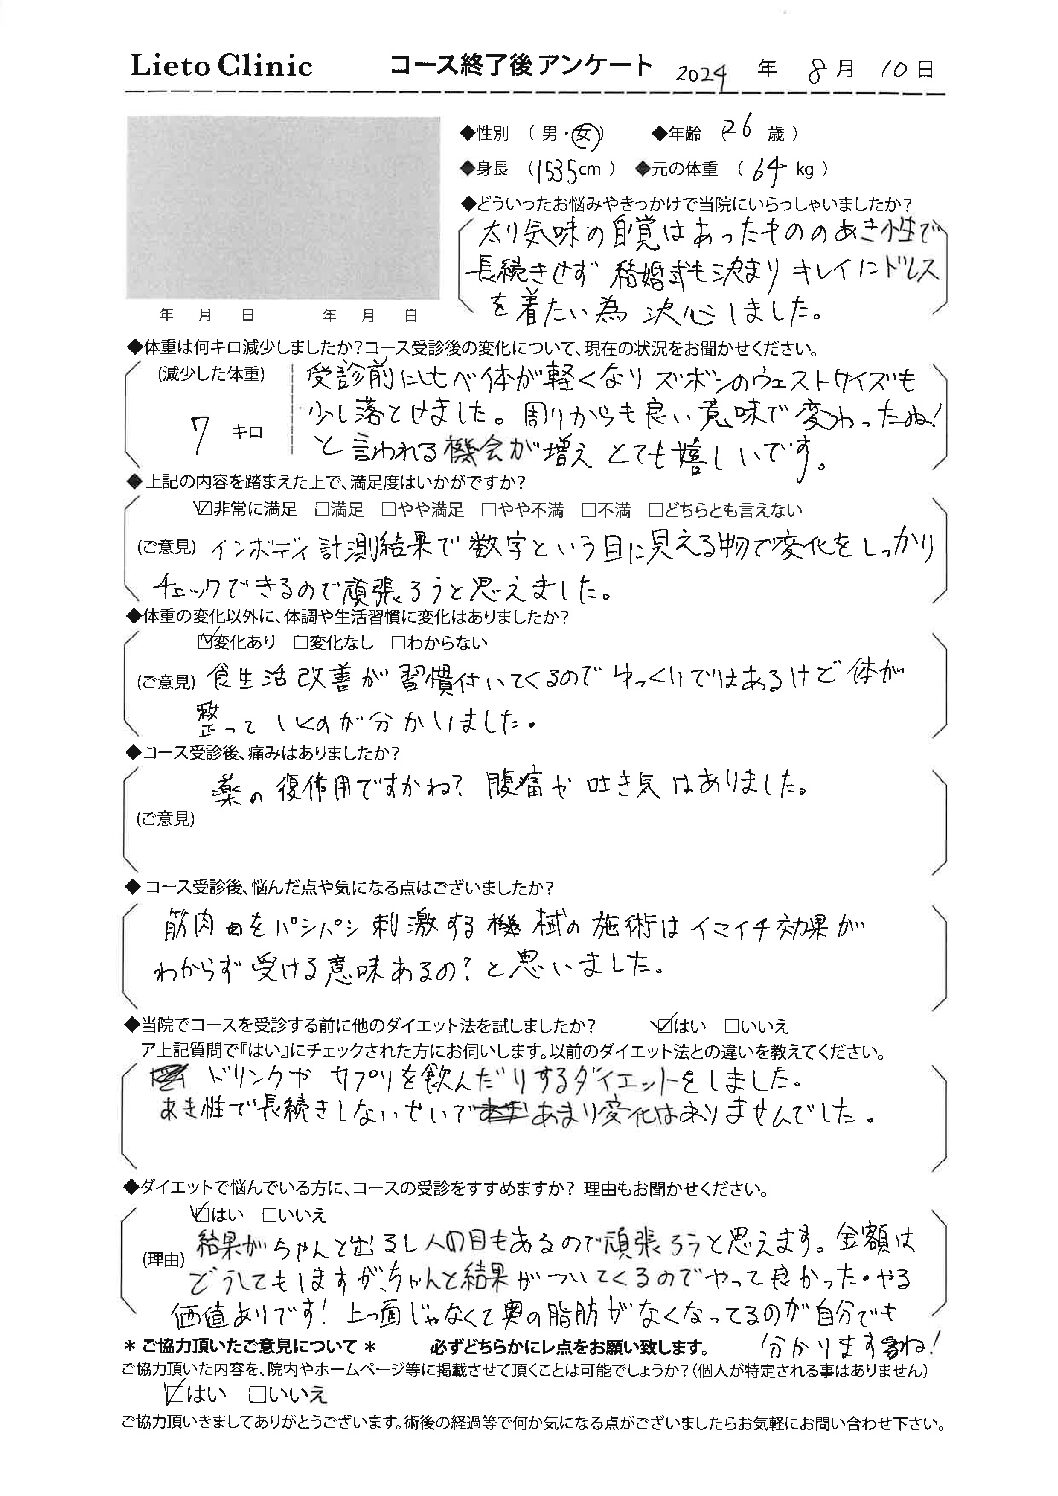 Lieto Clinic コース終了後アンケート 2024 年 8月 10日
◆性別 （ 男・女） ◆年齢 26 歳 ）
◆身長 （153.5cm ） ◆元の体重 （ 64 kg ）
◆どういったお悩みやきっかけで当院にいらっしゃいましたか？
太り気味の自覚はあったもののあき性で
長続きせず 結婚式も決まり キレイにドレス
を着たい為 決心しました。
年 月 日 年 月 日
◆体重は何キロ減少しましたか？コース受診後の変化について、現在の状況をお聞かせください。
（減少した体重）
7 キロ
受診前に比べ体が軽くなり ズボンのウエストサイズも
少し落とせました。周りからも良い意味で変わったね！
と言われる機会が増え とても嬉しいです。
◆上記の内容を踏まえた上で、満足度はいかがですか？
☑非常に満足 □満足 □やや満足 □やや不満 □不満 □どちらとも言えない
（ご意見） インボディ計測結果で数字という目に見える物で変化をしっかり
チェックできるので頑張ろうと思えました。
◆体重の変化以外に、体調や生活習慣に変化はありましたか？
☑変化あり □変化なし □わからない
（ご意見） 食生活改善が習慣付いてくるのでゆっくりではあるけど体が
整っていくのが分かいました。
◆コース受診後、痛みはありましたか？
薬の復作用ですかね？ 腹痛や吐き気はありました。
（ご意見）
◆コース受診後、悩んだ点や気になる点はございましたか？
筋肉をパシパシ刺激する機械の施術はイマイチ効果が
わからず受ける意味あるの？と思いました。
◆当院でコースを受診する前に他のダイエット法を試しましたか？ ☑はい □いいえ
ア上記質問で『はい』にチェックされた方にお伺いします。以前のダイエット法との違いを教えてください。
ドリンクや サプリを飲んだりするダイエットをしました。
あき性で長続きしないせいで あまり変化はありませんでした。
◆ダイエットで悩んでいる方に、コースの受診をすすめますか？ 理由もお聞かせください。
☑はい □いいえ
（理由） 結果がちゃんと出るし人の目もあるので頑張ろうと思えます。金額は
どうしてもしますが、ちゃんと結果がついてくるのでやって良かった・やる
価値ありです！上っ面じゃなくて奥の脂肪がなくなってるのが自分でも
分かりますね！
＊ご協力頂いたご意見について＊ 必ずどちらかにレ点をお願い致します。
ご協力頂いた内容を、院内やホームページ等に掲載させて頂くことは可能でしょうか？（個人が特定される事はありません）
☑はい □いいえ
ご協力頂いきましてありがとうございます。術後の経過等で何か気になる点がございましたらお気軽にお問い合わせ下さい。